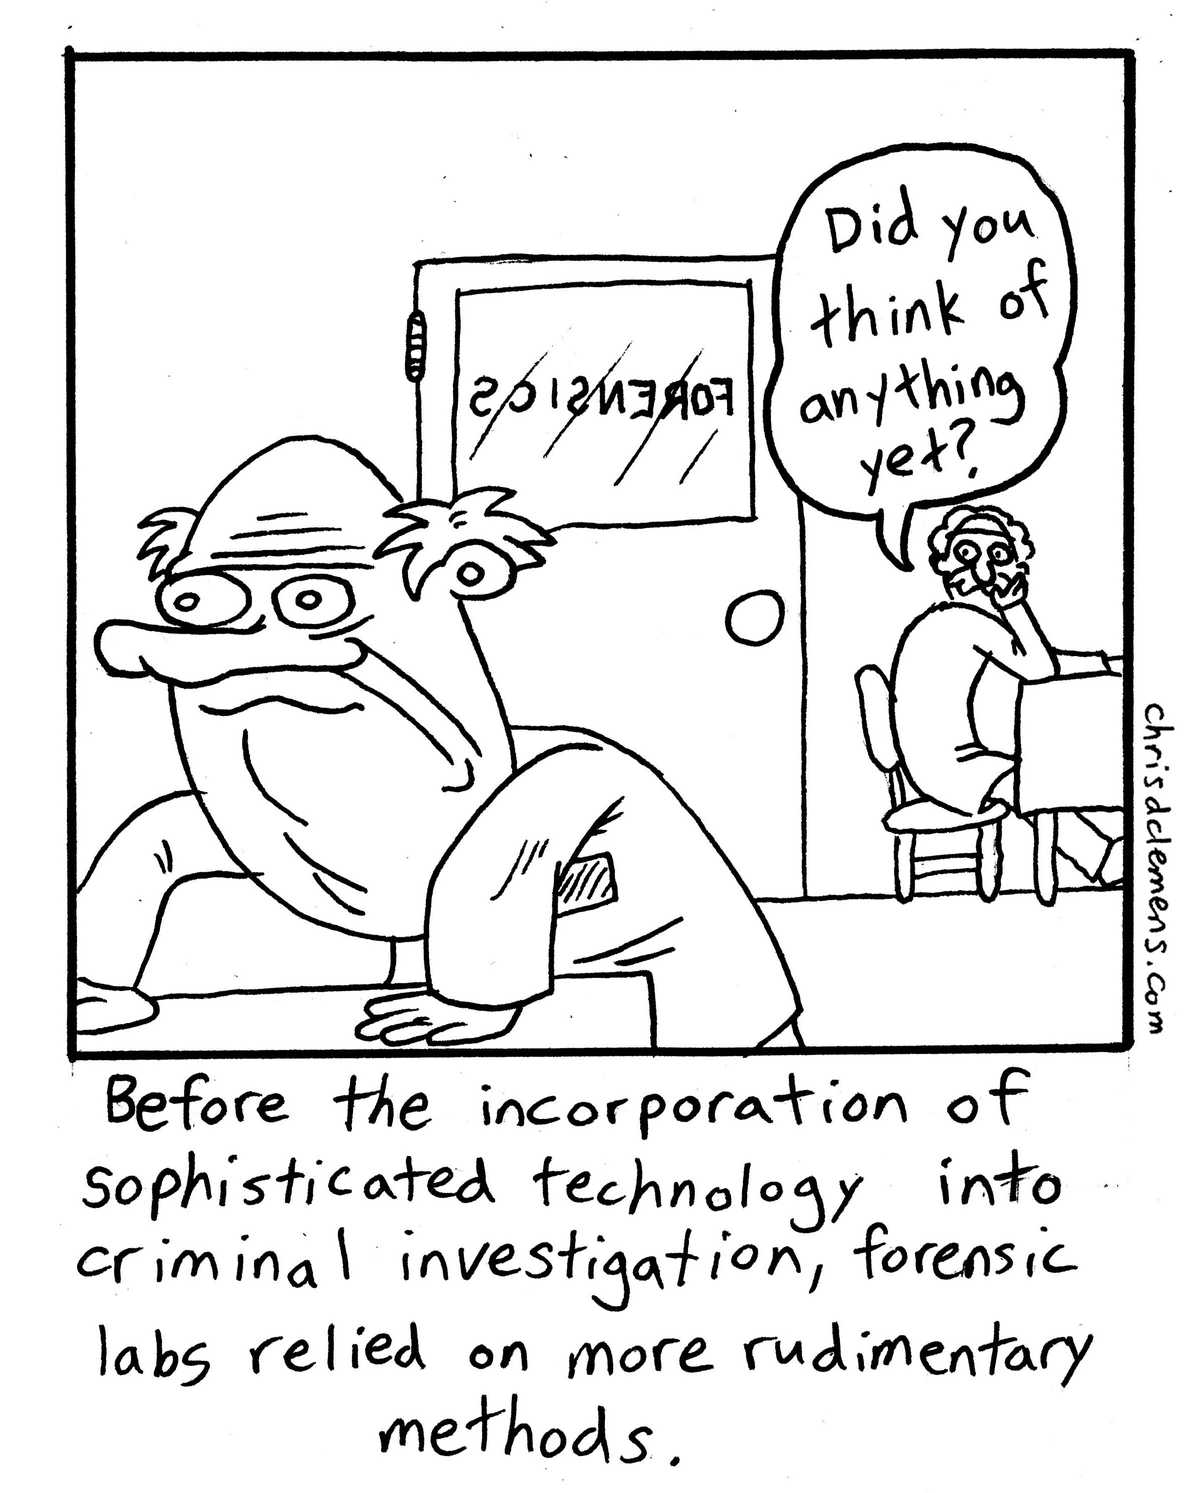 Did you
think of
anything
yet?
FORENSICS
chrisddemens.com
Before the incorporation of
sophisticated technology into
criminal investigation, forensic
labs relied on more rudimentary
methods.